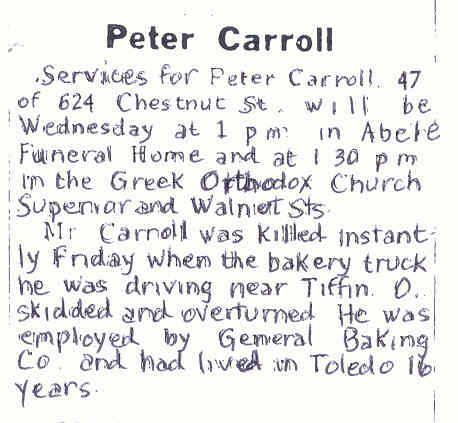 Peter Carroll
Services for Peter Carroll, 47
of 624 Chestnut St. will be
Wednesday at 1 pm in Abele
Funeral Home and at 1 30 pm
in the Greek Orthodox Church
Superior and Walnut Sts.
Mr Carroll was killed instant-
ly Friday when the bakery truck
he was driving near Tiffin. O.
skidded and overturned He was
employed by General Baking
Co. and had lived in Toledo 16
years.